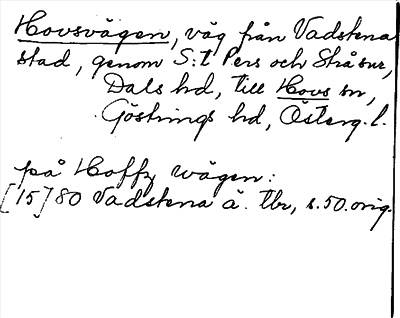 Hovsvägen, väg från Vadstena
stad, genom S:t Pers och Stråsnr,
Dals hd, till Hovs sn,
Göstrings hd, Österg. l.
på Hoffz wägen:
[15]80 Vadstena ä. tbr, s. 50. orig.